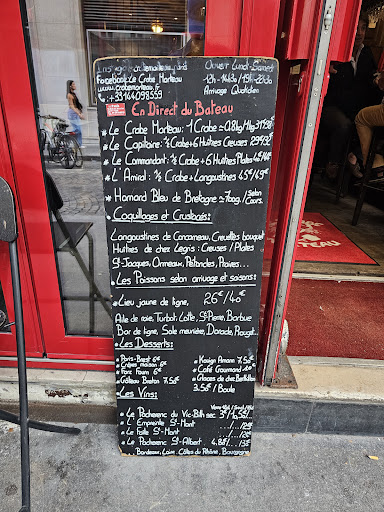 Instagram
Facebook: Le Crabe Marteau
www.crabemarteau.fr
Ouvert Lundi-Samedi
12h-14h30 / 19h-22h30
Arrivage Quotidien
En Direct du Bateau
Le Crabe Marteau: 1 Crabe
Le Capitaine: ½ Crabe + 6 Huîtres Creuses
Le Commandant: ½ Crabe + 6 Huîtres
L'Amiral: ½ Crabe + Langoustines 45€/49€
Homard Bleu de Bretagne ≈ 700g / Selon Cours.
Coquillages et Crustacés:
Langoustines de Concarneau, Crevettes bouquet
Huîtres de chez Legris: Creuses / Plates
St-Jacques, Ormeaux, Pétoncles, Praires...
Les Poissons selon arrivage et saisons:
Lieu jaune de ligne, 26€/40€
Aile de raie, Turbot, Lotte, St-Pierre, Barbue
Bar de ligne, Sole meunière, Dorade, Rouget...
Les Desserts:
Paris-Brest
Crêpes maison
Farz Fourn 6€
Gâteau Breton 7.50€
Kouign Amann 7.50€
Café Gourmand
Glaces de chez Berthillon
3.50€ / Boule
Les Vins:
Le Pacherenc du Vic-Bilh sec
L'Empreinte St-Mont
La Faîte St-Mont
Le Pacherenc St-Albert
Bordeaux, Loire, Côtes du Rhône, Bourgogne